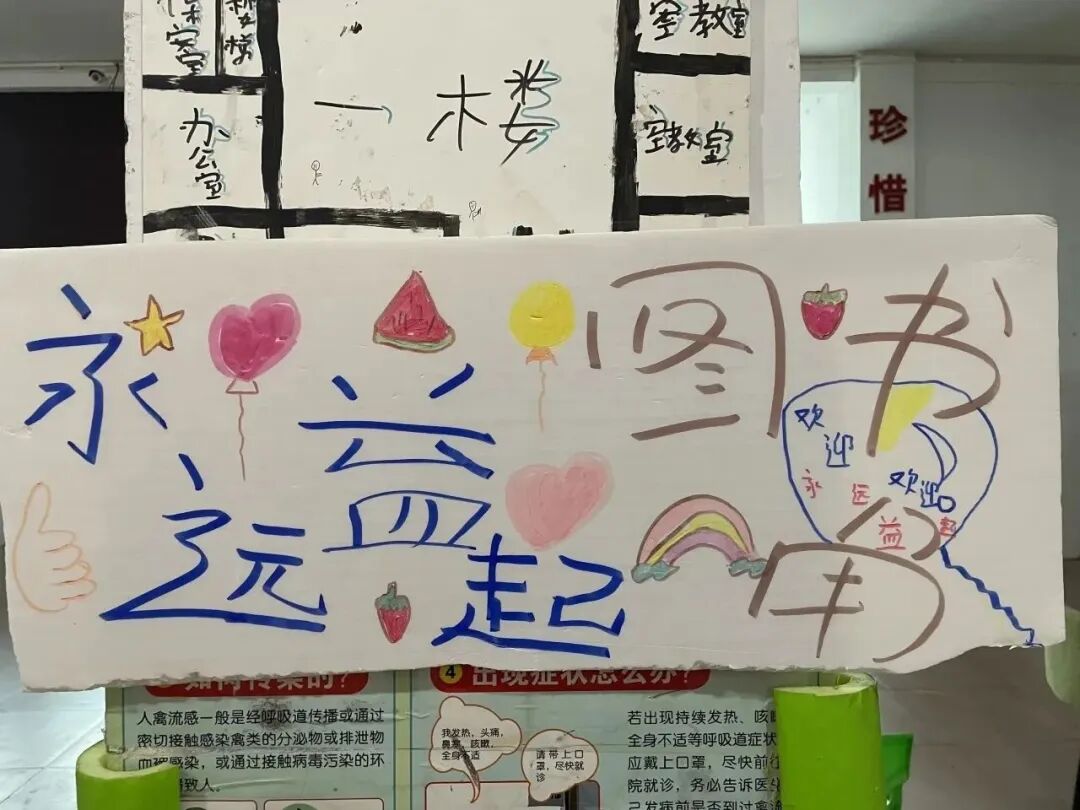 空教室
办公室
一楼
空教室
珍惜
永远益起
图书角
欢迎
欢迎
永远益起
如何传染的?
4 出现症状怎么办?
人禽流感一般是经呼吸道传播或通过
密切接触感染禽类的分泌物或排泄物
感染,或通过接触病毒污染的环
致人。
我发热,头痛,
鼻塞,咳嗽,
全身不适
请带上口
罩,尽快就
诊
若出现持续发热、咳
全身不适等呼吸道症
应戴上口罩,尽快前
院就诊,务必告诉医
己发病前是否到过禽